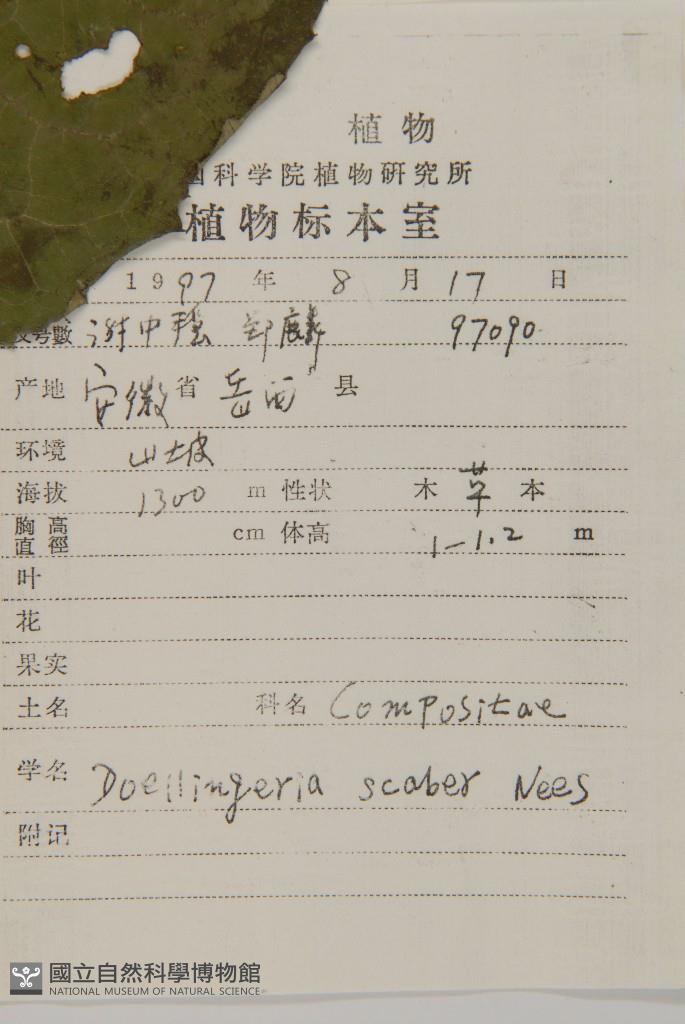 植物
国科学院植物研究所
植物标本室
1997 年 8 月 17 日
号數 谢中稳 郑麟 97090
产地 安徽省 岳西 县
环境 山坡
海拔 1300 m 性状 木 草 本
胸高直徑 cm 体高 1-1.2 m
叶
花
果实
土名 科名 Compositae
学名 Doellingeria scaber Nees
附记
國立自然科學博物館
NATIONAL MUSEUM OF NATURAL SCIENCE